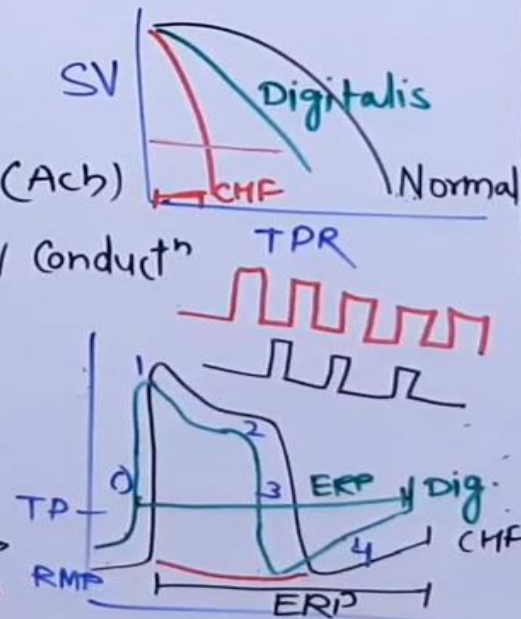 SV
Digitalis
(Ach)
CHF
Normal
TPR
Conductⁿ
1
0
2
3
ERP
Dig.
TP
4
CHF
RMP
ERP